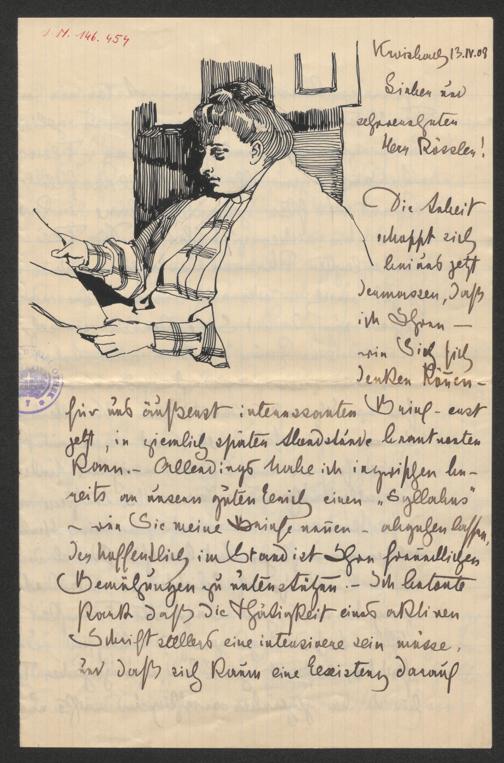 J.N. 146.454
13.IV.08
Lieber und
sehrverehrter
Herr Rössler!
Die Arbeit
schoppt sich
bei uns jetzt
dermassen, daß
ich Ihren –
wie Sie sich
denken können –
für uns äußerst interessanten Brief erst
jetzt, in ziemlich später Abendstunde beantworten
kann. – Allerdings habe ich inzwischen be-
reits an unseren guten Erich einen „Syllabus"
– wie Sie meine Briefe nennen – abgehen lassen,
der hoffentlich im Stand ist Ihre freundlichen
Bemühungen zu unterstützen. – Ich betonte
stark daß die Thätigkeit eines aktiven
Schriftstellers eine intensivere sein müsse,
und daß sich kaum eine Existenz darauf